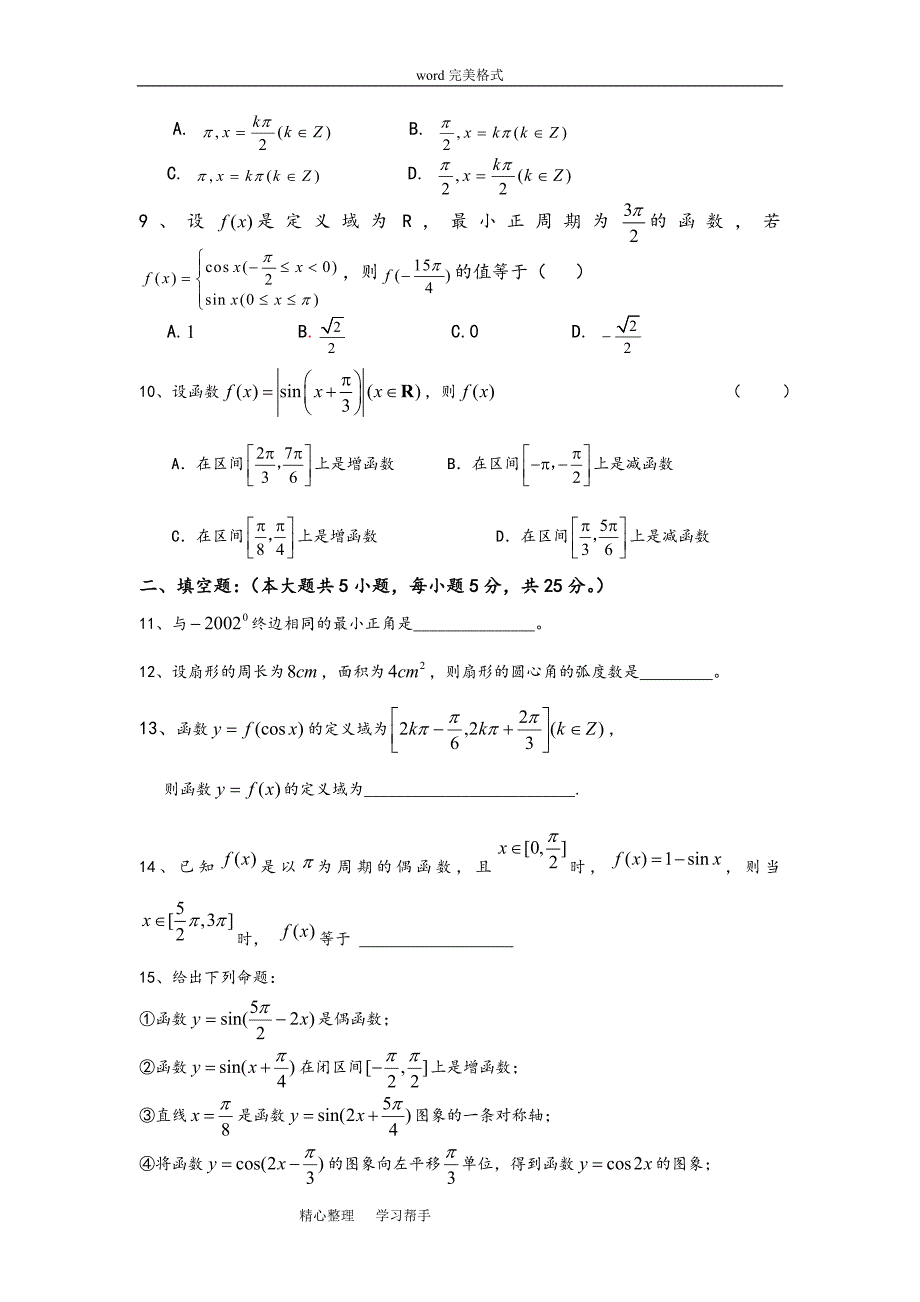 word 完美格式
A. π, x = kπ/2 (k ∈ Z)  B. π/2, x = kπ (k ∈ Z)
C. π, x = kπ (k ∈ Z)  D. π/2, x = kπ/2 (k ∈ Z)
9、设 f(x) 是定义域为 R，最小正周期为 3π/2 的函数，若
f(x) = { cos x (−π/2 ≤ x < 0)  sin x (0 ≤ x ≤ π) ，则 f(−15π/4) 的值等于（  ）
A. 1  B. √2/2  C. 0  D. −√2/2
10、设函数 f(x) = |sin(x + π/3)| (x ∈ R)，则 f(x)  （  ）
A．在区间 [2π/3，7π/6] 上是增函数  B．在区间 [−π，−π/2] 上是减函数
C．在区间 [π/8，π/4] 上是增函数  D．在区间 [π/3，5π/6] 上是减函数
二、填空题：（本大题共 5 小题，每小题 5 分，共 25 分。）
11、与 −2002⁰ 终边相同的最小正角是_______________。
12、设扇形的周长为 8cm，面积为 4cm²，则扇形的圆心角的弧度数是_________。
13、函数 y = f(cos x) 的定义域为 [2kπ − π/6, 2kπ + 2π/3] (k ∈ Z)，
则函数 y = f(x) 的定义域为__________________________.
14、已知 f(x) 是以 π 为周期的偶函数，且 x ∈ [0, π/2] 时，f(x) = 1 − sin x，则当
x ∈ [5/2 π, 3π] 时， f(x) 等于 ___________________
15、给出下列命题：
①函数 y = sin(5π/2 − 2x) 是偶函数；
②函数 y = sin(x + π/4) 在闭区间 [−π/2, π/2] 上是增函数；
③直线 x = π/8 是函数 y = sin(2x + 5π/4) 图象的一条对称轴；
④将函数 y = cos(2x − π/3) 的图象向左平移 π/3 单位，得到函数 y = cos 2x 的图象；
精心整理  学习帮手